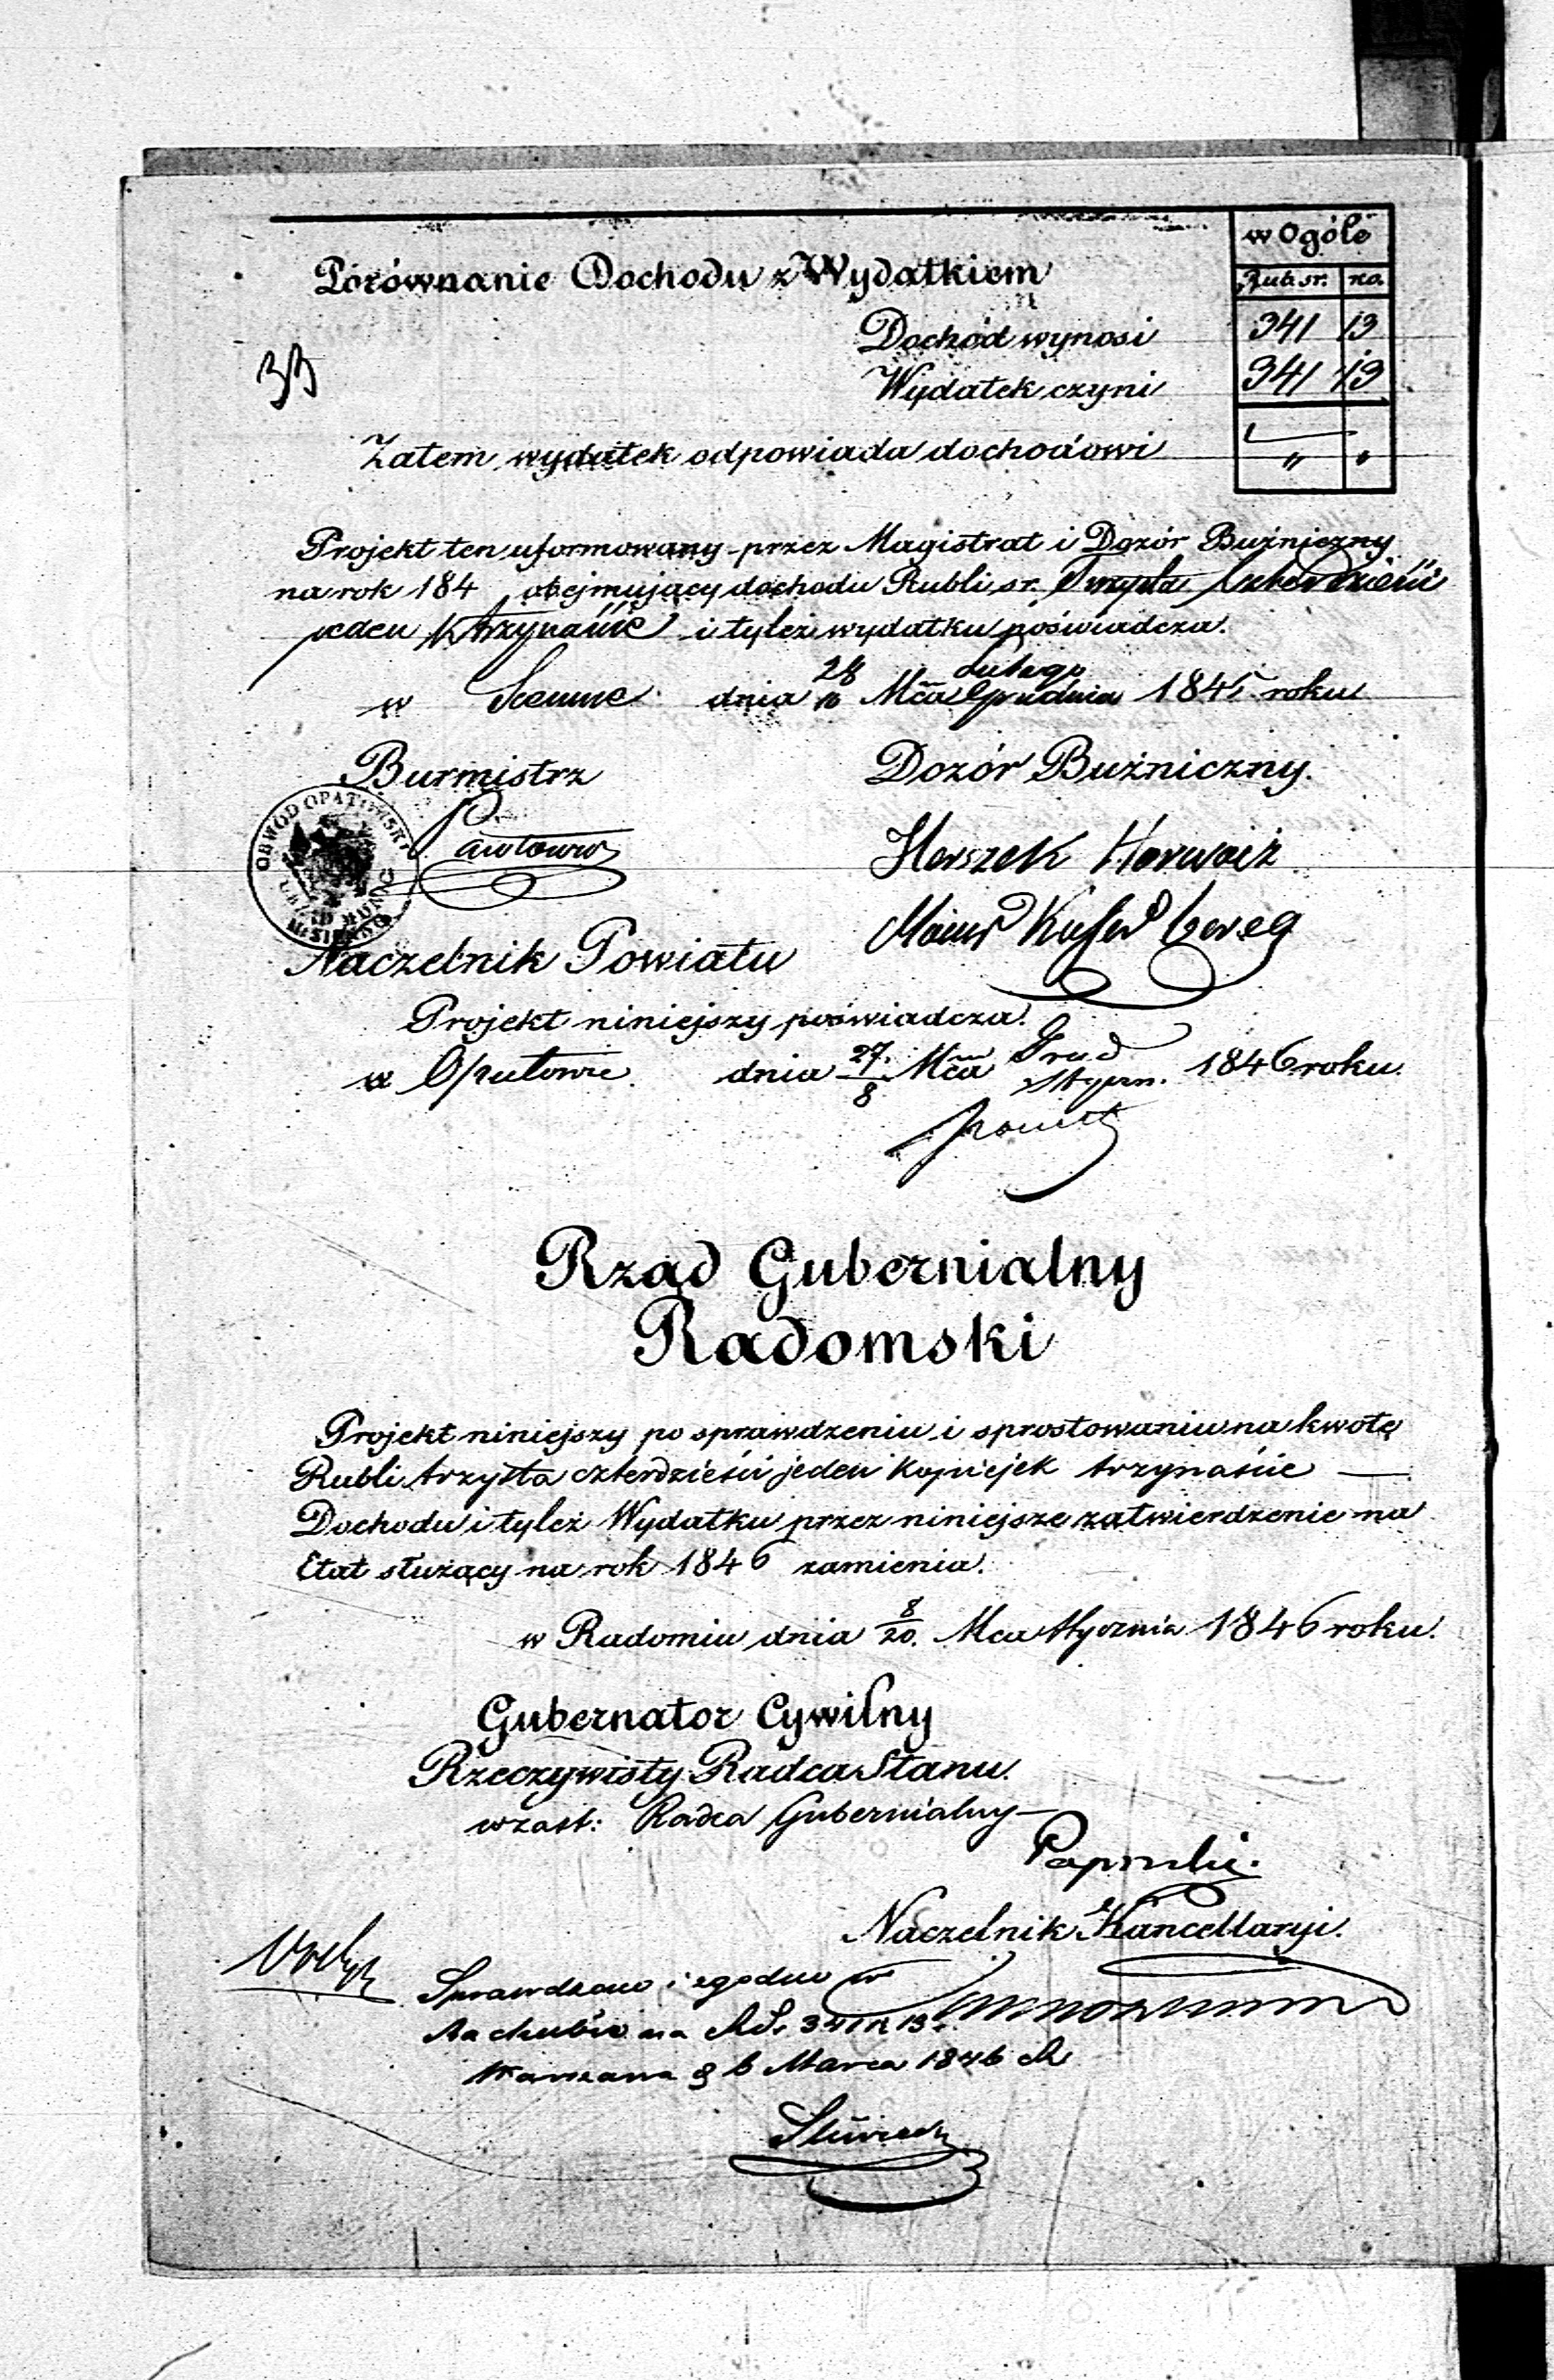 w Ogóle
Porównanie Dochodu z Wydatkiem
Rub. sr. ko.
Dochód wynosi 341 13
Wydatek czyni 341 13
Zatem wydatek odpowiada dochodowi " "
Projekt ten uformowany przez Magistrat i Dozór Buźniczny
na rok 184 obejmujący dochodu Rubli sr. Trzysta czterdzieści
jeden k trzynaście i tyleż wydatku poświadcza.
w Siennie dnia 28/16 Mca Lutego Grudnia 1845 roku
Burmistrz Dozór Buźniczny.
OBWÓD OPATOWSKI
Herszek Horwicz
Naczelnik Powiatu
Projekt niniejszy poświadcza.
w Opatowie. dnia 27/8 Mca Grud. Stycz. 1846 roku.
Rząd Gubernialny
Radomski
Projekt niniejszy po sprawdzeniu i sprostowaniu na kwotę
Rubli trzysta czterdzieści jeden kopiejek trzynaście —
Dochodu i tyleż Wydatku przez niniejsze zatwierdzenie na
Etat służący na rok 1846 zamienia.
w Radomiu dnia 8/20. Mca Stycznia 1846 roku.
Gubernator Cywilny
Rzeczywisty Radca Stanu.
w zast: Radca Gubernialny —
Naczelnik Kancellaryi.
Sprawdzono i zgodno w
Rachubie na RS. 341 k 13.
Warszawa d 6 Marca 1846 R